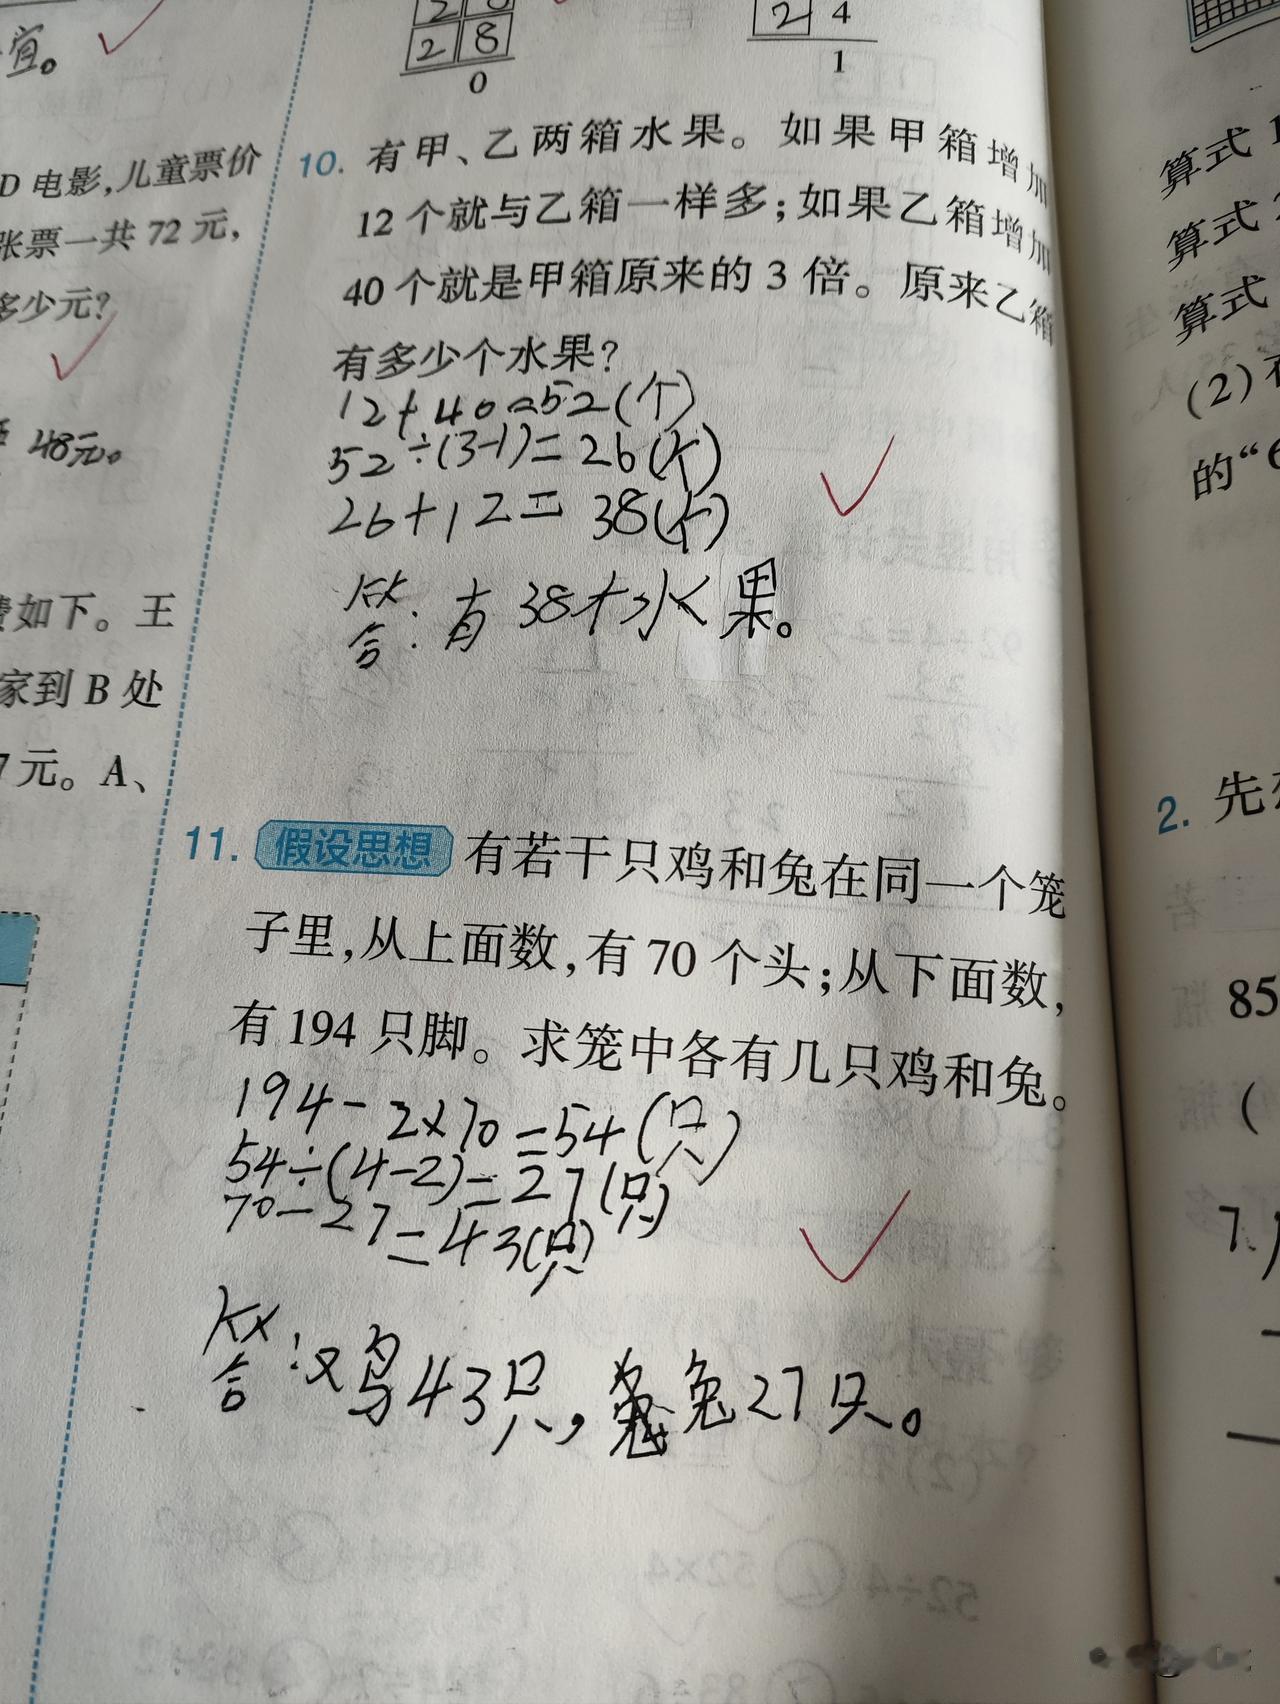 宜。
D 电影,儿童票价
张票一共 72 元,
多少元?
48元。
费如下。王
家到 B 处
7 元。A、
2 8
0
2 4
1
10. 有甲、乙两箱水果。如果甲箱增加
12 个就与乙箱一样多;如果乙箱增加
40 个就是甲箱原来的 3 倍。原来乙箱
有多少个水果?
12+40=52(个)
52÷(3-1)=26(个)
26+12=38(个)
答:有38个水果。
11. 假设思想 有若干只鸡和兔在同一个笼
子里,从上面数,有 70 个头;从下面数,
有 194 只脚。求笼中各有几只鸡和兔。
194-2×70=54(只)
54÷(4-2)=27(只)
70-27=43(只)
答:鸡43只,兔27只。
算式 1
算式 2
算式
(2)
的“6
2. 先
85
(
7